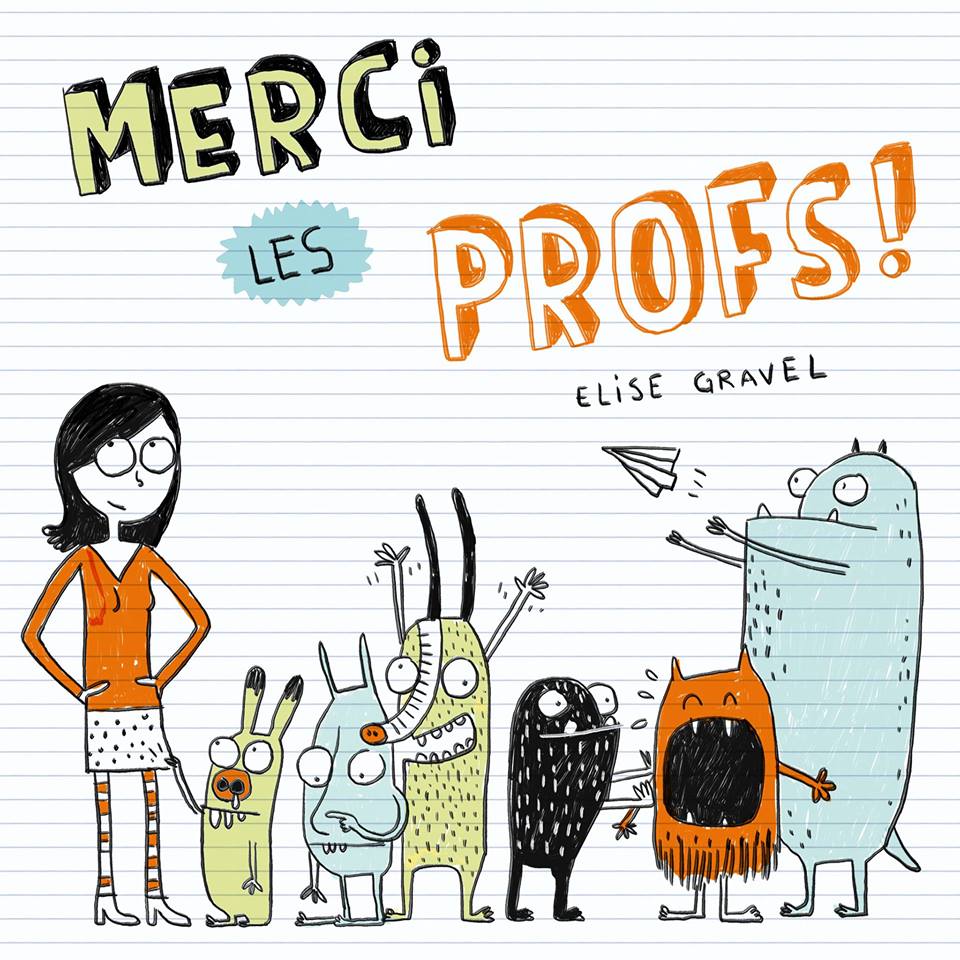 MERCi
LES
PROFS!
ELiSE GRAVEL